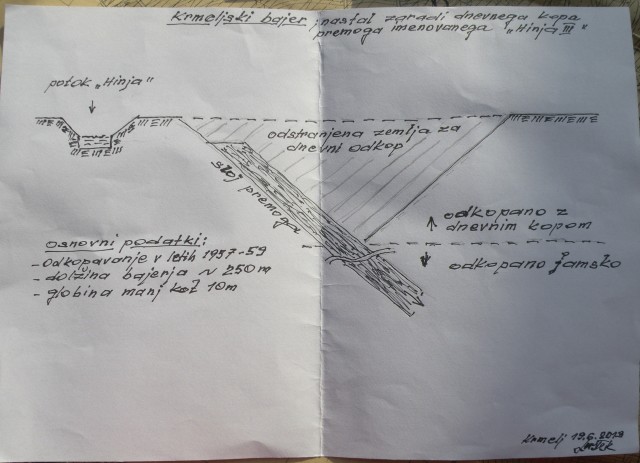 Krmeljski bajer ; nastal zaradi dnevnega kopa
premoga imenovanega "Hinja III"
potok "Hinja"
odstranjena zemlja za
dnevni odkop
sloj premoga
odkopano z
dnevnim kopom
odkopano jamsko
osnovni podatki:
- Odkopavanje v letih 1957-59
- dolžina bajerja ~ 250 m
- globina manj kot 10m
Krmelj 19.6.2019